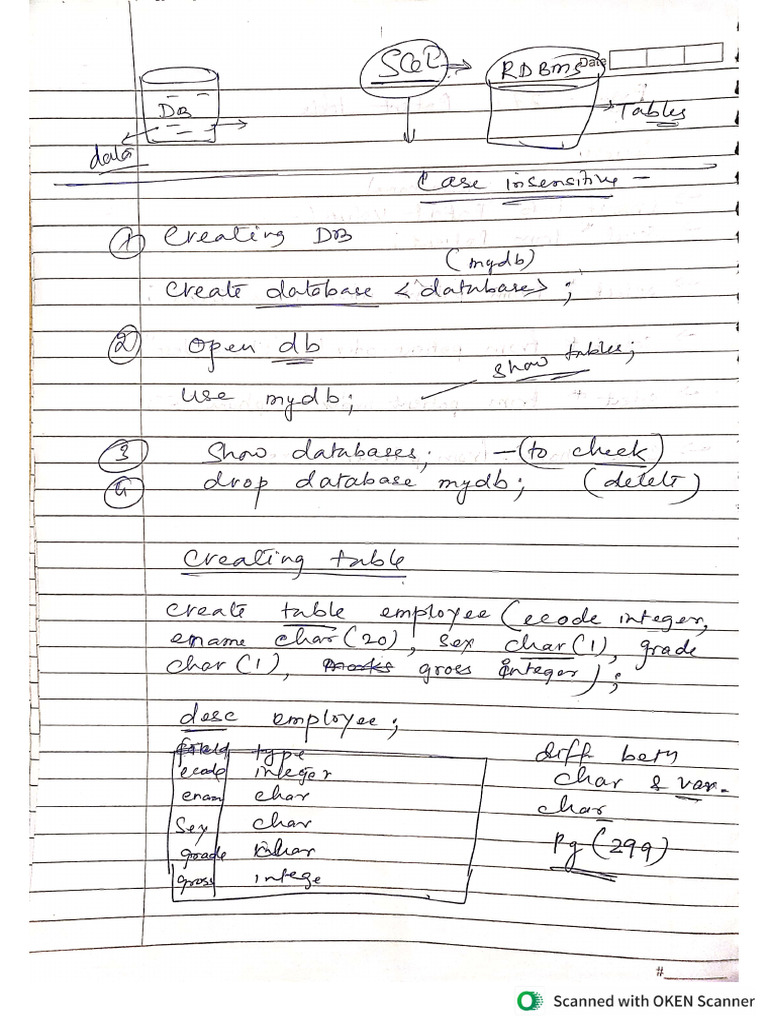 SQL → RDBMS Date
DB → → Tables
data
Case insensitive -
① Creating DB
(mydb)
create database <database>;
② open db
show tables;
use mydb;
③ Show databases; - (to check)
④ drop database mydb; (delete)
Creating table
create table employee (ecode integer,
ename char(20), sex char(1), grade
char(1), marks gross integer);
desc employee;
field type
ecode integer
enam char
Sex char
grade char
gross intege
diff betn
char & var-
char
Pg (299)
#
Scanned with OKEN Scanner